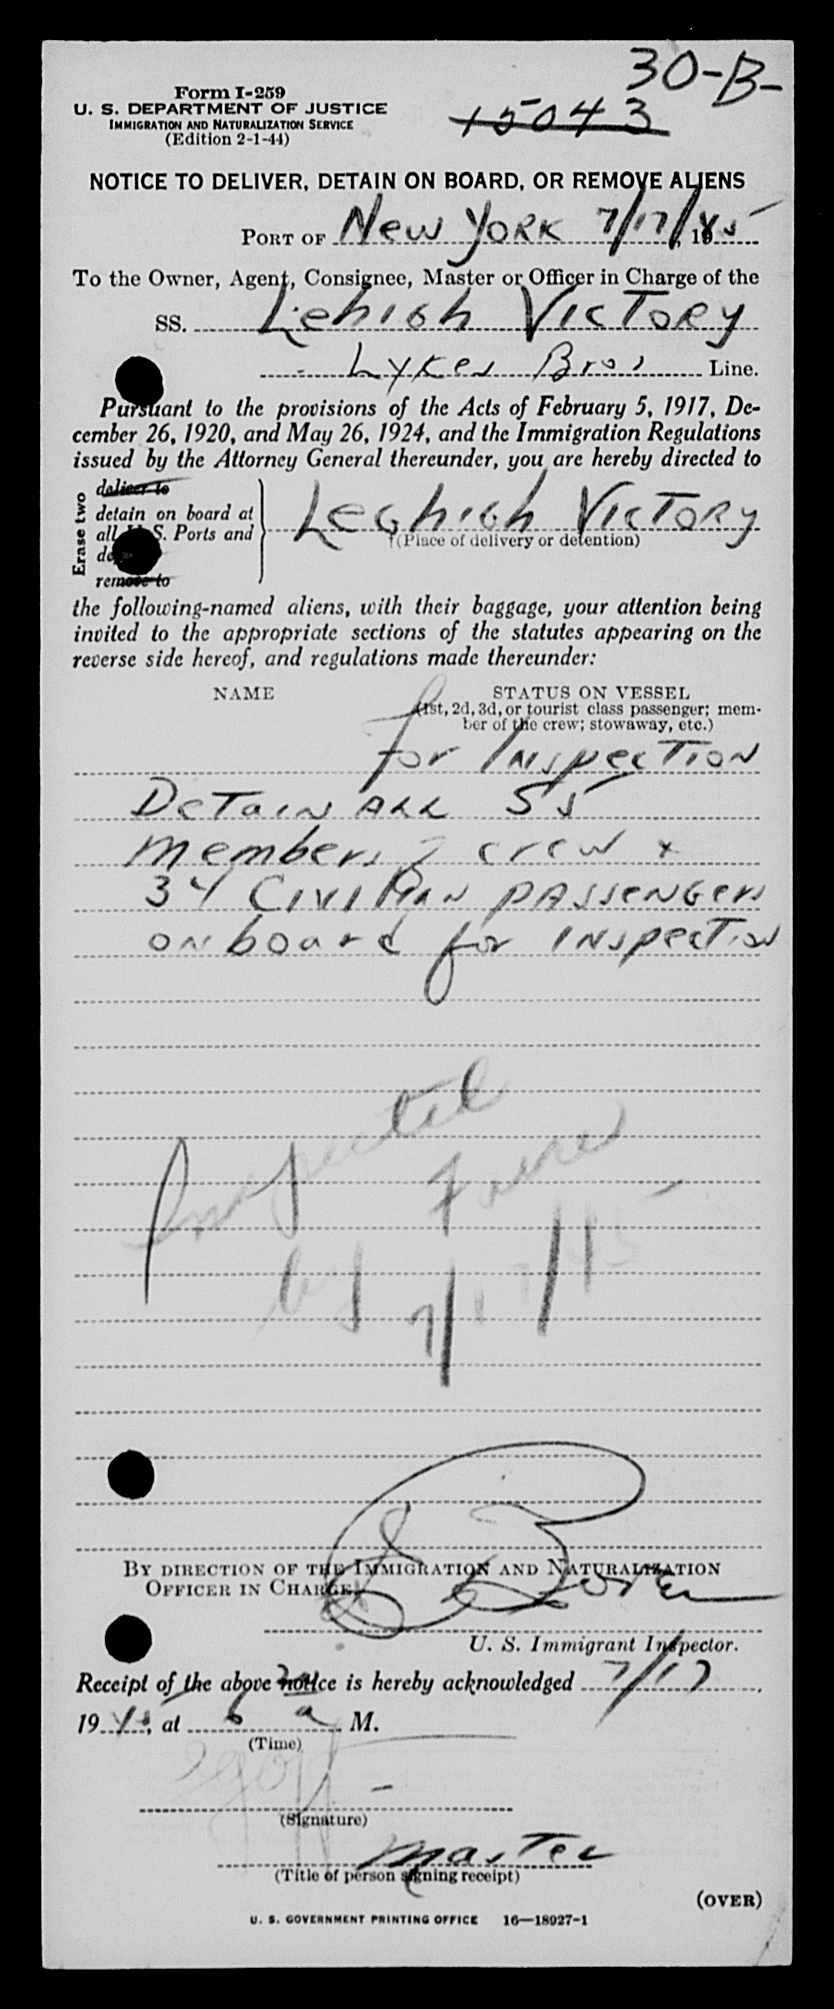 30-B-
Form I-259
U. S. DEPARTMENT OF JUSTICE
IMMIGRATION AND NATURALIZATION SERVICE
(Edition 2-1-44)
15043
NOTICE TO DELIVER, DETAIN ON BOARD, OR REMOVE ALIENS
PORT OF New York 7/17/, 1945
To the Owner, Agent, Consignee, Master or Officer in Charge of the
SS. Lehigh Victory
Lykes Bros Line.
Pursuant to the provisions of the Acts of February 5, 1917, De-
cember 26, 1920, and May 26, 1924, and the Immigration Regulations
issued by the Attorney General thereunder, you are hereby directed to
Erase two
deliver to
detain on board at
all U. S. Ports and
remove to
Leghigh Victory
(Place of delivery or detention)
the following-named aliens, with their baggage, your attention being
invited to the appropriate sections of the statutes appearing on the
reverse side hereof, and regulations made thereunder:
NAME STATUS ON VESSEL
(1st, 2d, 3d, or tourist class passenger; mem-
ber of the crew; stowaway, etc.)
for Inspection
Detain all 55
members crew
34 Civilian passengers
on board for inspection
Inspected
by
7/17/45
BY DIRECTION OF THE IMMIGRATION AND NATURALIZATION
OFFICER IN CHARGE
U. S. Immigrant Inspector.
Receipt of the above notice is hereby acknowledged 7/17,
1945, at 6 a M.
(Time)
(Signature)
Master
(Title of person signing receipt)
(OVER)
U. S. GOVERNMENT PRINTING OFFICE 16—18927-1